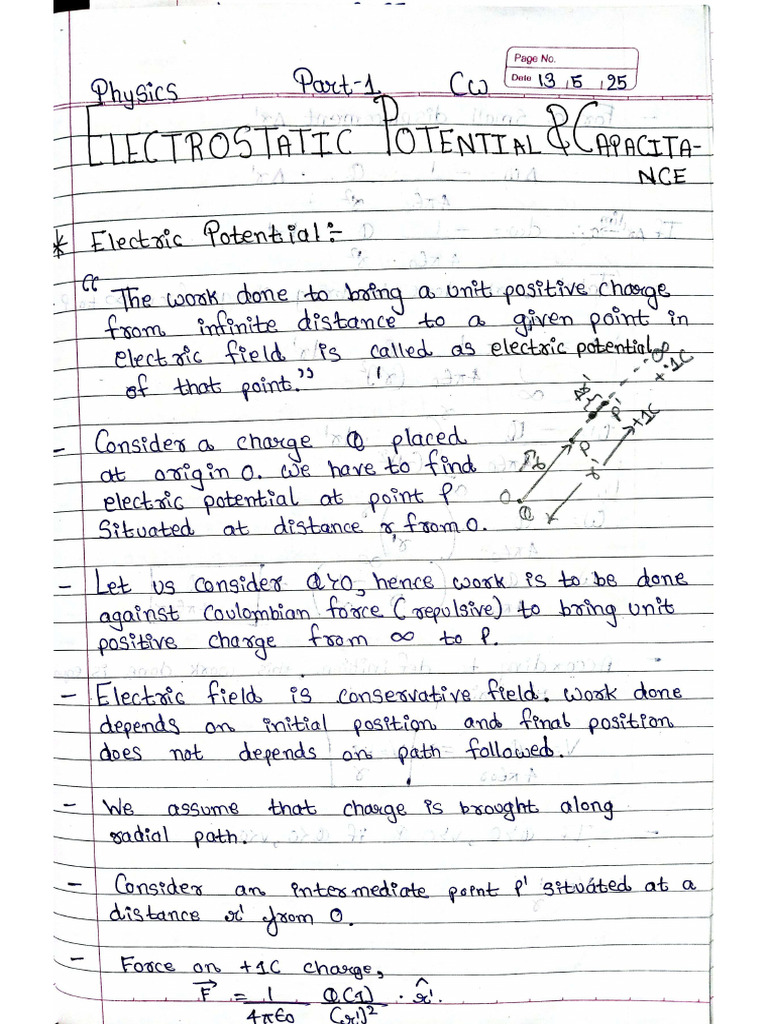 Page No.
Physics Part-1 Cw Date 13 5 25
ELECTROSTATIC POTENTIAL & CAPACITA-
NCE
* Electric Potential:-
"The work done to bring a unit positive charge
from infinite distance to a given point in
electric field is called as electric potential
of that point."
- Consider a charge Q placed
at origin O. We have to find
electric potential at point P
situated at distance r from O.
∞
+1C
P'
P
+1C
r
O
Q
- Let us consider Q>0, hence work is to be done
against Coulombian force (repulsive) to bring unit
positive charge from ∞ to P.
- Electric field is conservative field. Work done
depends on initial position and final position
does not depends on path followed.
- We assume that charge is brought along
radial path.
- Consider an intermediate point P' situated at a
distance r' from O.
- Force on +1C charge,
F⃗ = 1/4πε0 Q(1)/(r')² · r̂'